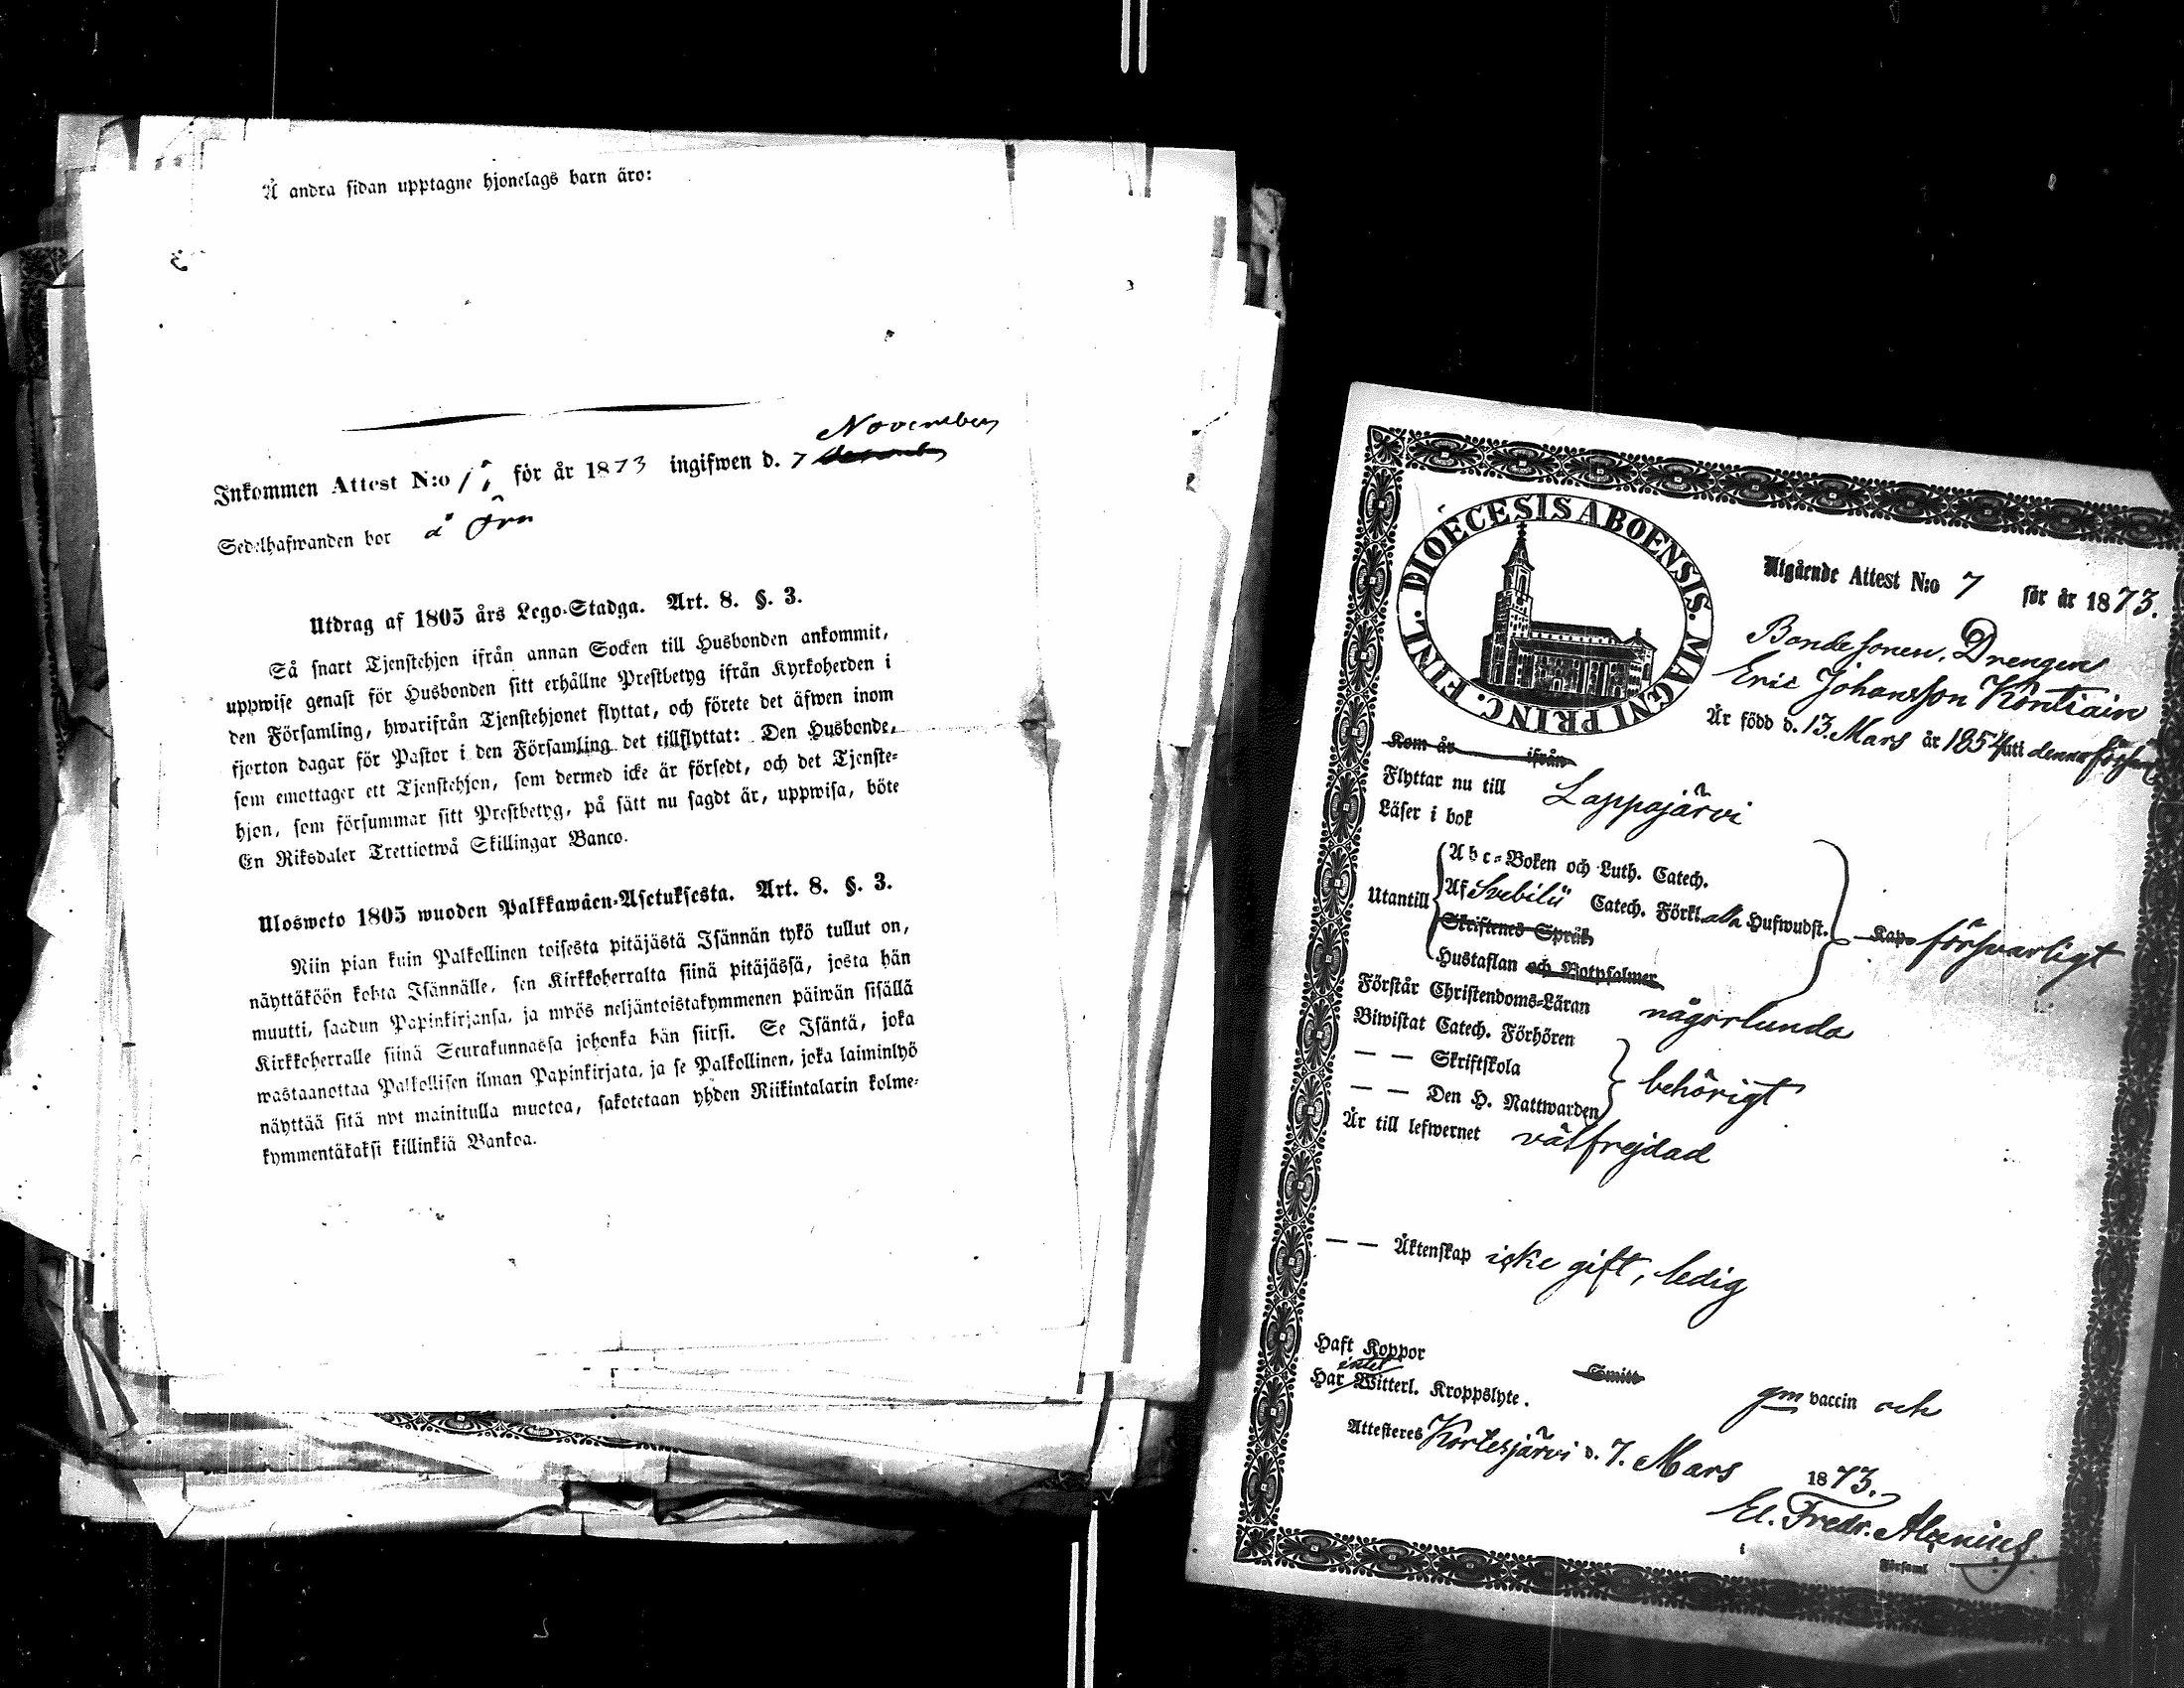 Å andra sidan upptagne hjonelags barn äro:
November
Inkommen Attest N:o för år 1873 ingifwen d. 7
Sedelhafwanden bor å
Utdrag af 1805 års Lego-Stadga. Art. 8. §. 3.
Så snart Tjenstehjon ifrån annan Socken till Husbonden ankommit,
uppwise genast för Husbonden sitt erhållne Prestbetyg ifrån Kyrkoherden i
den Församling, hwarifrån Tjenstehjonet flyttat, och förete det äfwen inom
fjorton dagar för Pastor i den Församling det tillflyttat: Den Husbonde,
som emottager ett Tjenstehjon, som dermed icke är försedt, och det Tjenste-
hjon, som försummar sitt Prestbetyg, på sätt nu sagdt är, uppwisa, böte
En Riksdaler Trettiotwå Skillingar Banco.
Ulosweto 1805 wuoden Palkkawäen-Asetuksesta. Art. 8. §. 3.
Niin pian kuin Palkollinen toisesta pitäjästä Isännän tykö tullut on,
näyttäköön kohta Isännälle, sen Kirkkoherralta siinä pitäjässä, josta hän
muutti, saadun Papinkirjansa, ja myös neljäntoistakymmenen päiwän sisällä
Kirkkoherralle siinä Seurakunnassa johonka hän siirsi. Se Isäntä, joka
wastaanottaa Palkollisen ilman Papinkirjata, ja se Palkollinen, joka laiminlyö
näyttää sitä nyt mainitulla muotoa, sakotetaan yhden Riikintalarin kolme-
kymmentäkaksi killinkiä Bankoa.
DIOECESIS ABOENSIS. MAGNI PRINC. FINL.
Utgående Attest N:o 7 för år 1873.
Bondesonen, Drengen
Eric Johansson Kontiain
Är född d. 13. Mars år 1854 uti denna förs
Kom år ifrån
Flyttar nu till Lappajärvi
Läser i bok
Abc-Boken och Luth. Catech.
Utantill Af Svebilii Catech. Förkl. alla Hufwudst. Kap. försvarligt
Skriftenes Språk
Hustaflan och Botpsalmer
Förstår Christendoms-Läran någorlunda
Biwistat Catech. Förhören
— — Skriftskola behörigt
— — Den H. Nattwarden
Är till lefwernet välfrejdad
— — Äktenskap icke gift, ledig
Haft Koppor Smitt gm vaccin och
Har intet Witterl. Kroppslyte.
Attesteres Kortesjärvi d. 7. Mars 1873.
El. Fredr. Alcenius.
Församl